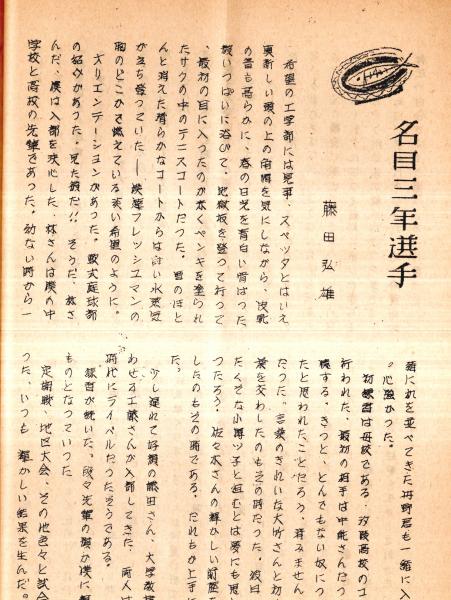 名目三年選手
藤田弘雄
希望の工学部には見事、スベッタとはいえ
真新しい頭の上の角帽を気にしながら、皮靴
の音も高らかに、春の日光を青白い背はった
顔いっぱいに浴びて、地獄坂を登って行って
、最初の目に入ったのが赤くペンキを塗られ
たサクの中のテニスコートだった。雪のほと
んと消えた滑らかなコートからは白い水蒸気
が立ち登っていた――模範フレッシュマンの
胸のどこかで燃えている淡い希望のように。
オリエンテーションがあった。軟式庭球部
の紹介があった。見た顔だ!! そうだ、林さ
んだ。僕は入部を決心した。林さんは僕の中
学校と高校の先輩であった。幼ない時から一
緒に机を並べてきた舟野君も一緒に入
。心強かった。
初練習は母校である、汐陵高校のコ
行われた。最初の相手は中能さんだっ
たと思われたことだろう。済みません
だった。言葉のきれいな大竹さんと初
葉を交わしたのもその時だった。彼曰
ったろう。佐々木さんの輝かしい前歴
したのもその時である。だれもが上手に
た。
少し遅れて好顔の織田さん、大学教授
わせる工藤さんが入部してきた。両人は
時代にライバルだったそうである。
練習が続いた。段々先輩の球が僕に
ものとなっていった
定期戦、地区大会、その他色々と試合
った。いつも輝かしい結果を生んだ。